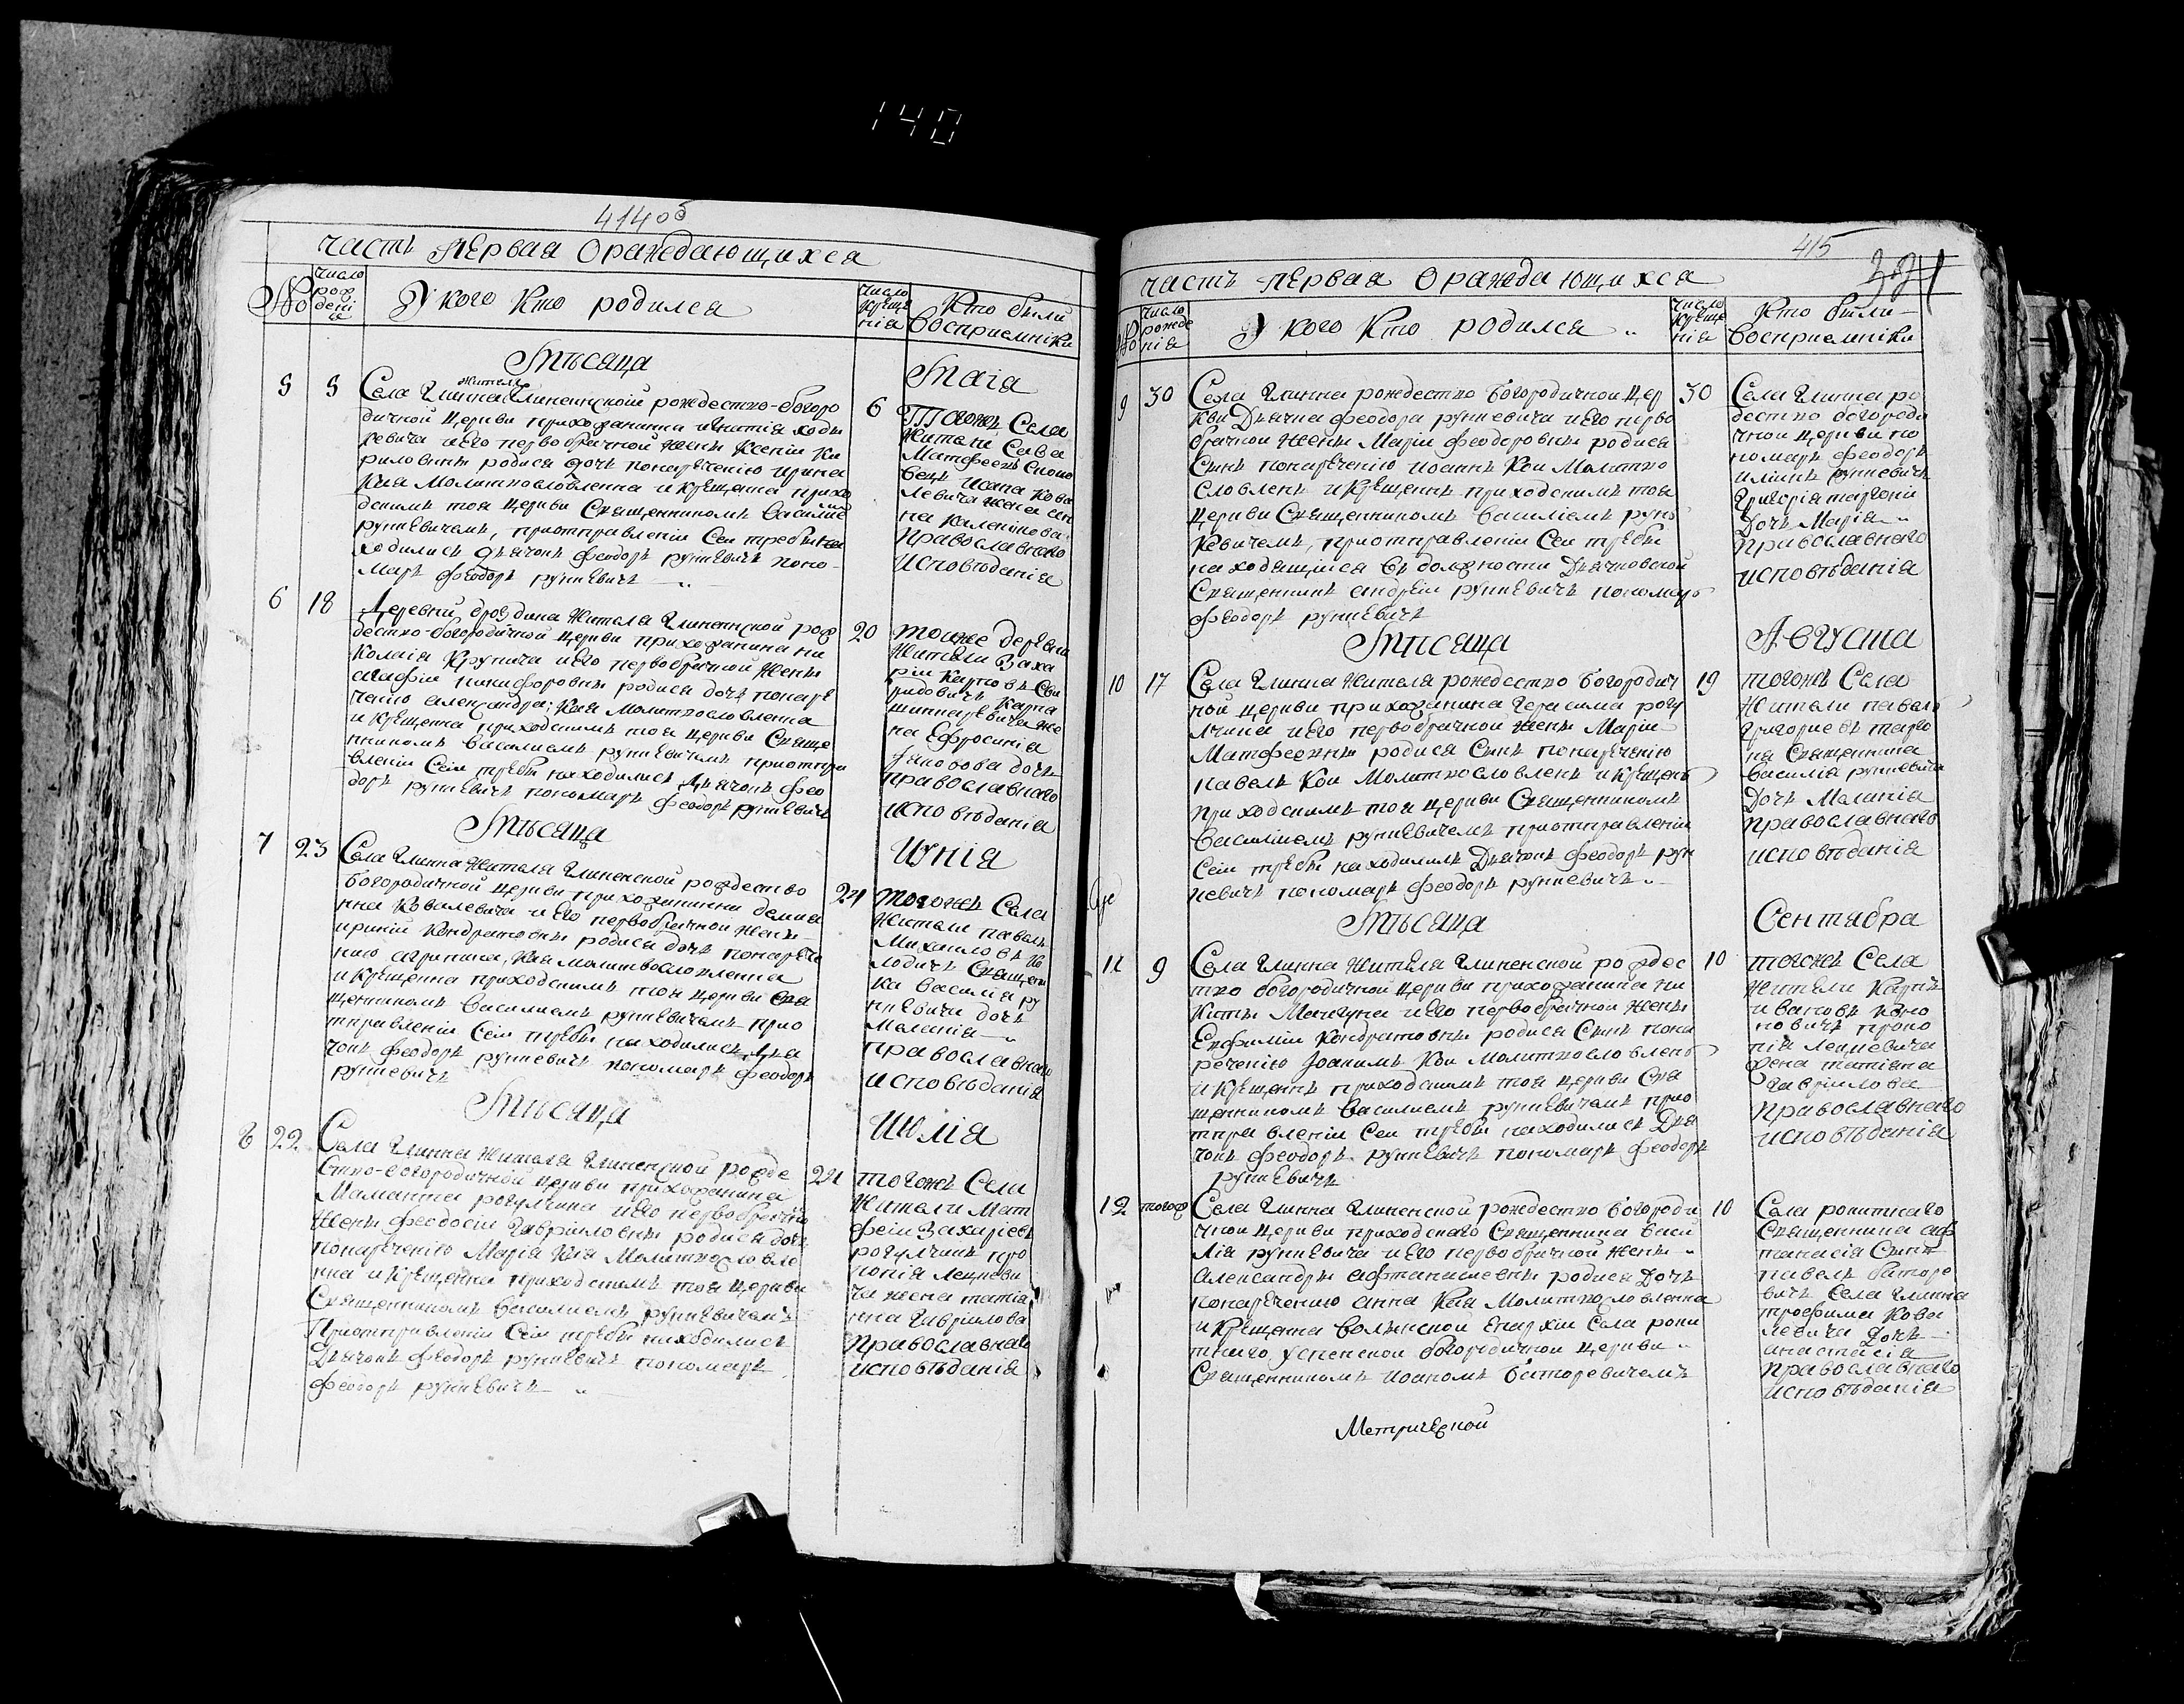 140
414 об
Часть первая о раждающихся
№
число рождения
У кого кто родился
число крещения
Кто были восприемники
Мѣсяца
Маiя
5
5
Села Глинна жителя Глиненской рождество-богоро
дичной церкви прихожанина Игнатiя Ходы
ревича и его первобрачной жены Ксенiи Ки
риловны родися дочь понаречению Ирина
Кая молитвословленна и крещенна прихо
дскимъ тоя церкви священникомъ Василiемъ
рункевичемъ, приотправленiи сеи требы на
ходились дьячокъ феодоръ рункевичъ поно
марь феодоръ рункевичъ
6
Тогожъ Села
Жители Сава
Матфеевъ
вецъ Иоана Кова
левича жена
на Калениковна
Православнаго
исповѣданiя
6
18
Деревни Дроздина жителя Глиненской рож
дество-богородичной церкви прихожанина Ни
колаiя Крупича и его первобрачной жены
Агафiи Никифоровны родися дочь понаре
ченiю александра; Кая молитвословленна
и крещенна приходскимъ тоя церкви Свяще
нникомъ Василиемъ рункевичемъ приотпра
вленiи сеи требы находились Дьячокъ фео
доръ рункевичъ пономарь феодоръ рункевичъ
20
тоиже деревни
Жители Заха
рiи Карповъ Сви
ридовичъ Карпа
же
на Ефросинiа
Яковова дочь
православнаго
исповѣданiя
Мѣсяца
Иунiя
7
23
Села Глинна жителя Глиненской рождество
богородичной церкви прихожанина Демиа
на Ковалевича и его первобрачной жены
ирины Кондратовны родися дочь понарече
нию агрипина, Кая молитвословленна
и крещенна приходскимъ тоя церкви свя
щенникомъ Василиемъ рункевичемъ прио
тправленiи сеи требы находились Дья
чокъ феодоръ рункевичъ пономарь феодоръ
рункевичъ
24
тогожъ Села
Жители павелъ
Михаиловъ
лодичъ Священи
ка Василiа ру
нкевича дочь
Маланiа
православнаго
исповѣданiя
Мѣсяца
Июлiя
8
22
Села Глинна жителя Глиненской рожде
ство-богородичной церкви прихожанина
Маманта рогулчина и его первобрачной
жены феодосiи Гавриловны родися дочь
понаречению Марiя кая молитвословле
нна и крещенна приходскимъ тоя церкви
Священникомъ Василиемъ рункевичемъ
Приотправленiи сеи требы находились
Дьячокъ феодоръ рункевичъ пономарь
феодоръ рункевичъ
24
тогожъ Села
Жители Мат
феи Захарiевъ
рогулчинъ про
копiя Лецкеви
ча жена татiа
нна Гаврилова
православнаго
исповѣданiя
415
Часть первая о раждающихся
№
число рожденiя
У кого кто родился
число крещенiя
Кто были восприемники
9
30
Села Глинна рождество богородичнои цер
кви Дьячка феодора рункевича и его перво
брачной жены Марiи феодоровны родися
Сынъ понаречению иоаннъ Кои молитво
словленъ и крещенъ приходскимъ тоя
церкви Священникомъ Василiемъ рун
кевичемъ, приотправленiи сеи требы
находящiися въ должности Дьячковской
Священникъ андреи рункевичъ пономарь
феодоръ рункевичъ
30
Села Глина ро
дество богороди
чнои церкви по
номарь феодоръ
рункевичъ
Григорiя
Дочь Марiа
православнаго
исповѣданiя
Мѣсяца
Августа
10
17
Села Глинна жителя рождество богородич
ной церкви прихожанина Герасима рогу
лчина и его первобрачной жены Марiи
Матфеевны родися сынъ понаречению
павелъ Кои молитвословленъ и крещенъ
приходскимъ тоя церкви Священникомъ
Василиемъ рункевичемъ приотправленiи
сеи требы находились Дьячокъ феодоръ рун
кевичъ пономарь феодоръ рункевичъ
19
тогожъ Села
Жители павелъ
григориевъ
на Священника
Василiя рункевича
Дочь Маланiа
православнаго
исповѣданiя
Мѣсяца
Сентябра
11
9
Села Глинна жителя Глиненской рождес
тво богородичной церкви прихожанина Ни
киты Мачуна и его первобрачной жены
Евфимiи Кондратовны родися сынъ пона
речению Iоакимъ Кои молитвословленъ
и крещенъ приходскимъ тоя церкви свя
щенникомъ Василиемъ рункевичемъ прио
тправленiи сеи требы находились Дья
чокъ феодоръ рункевичъ пономарь феодоръ
рункевичъ
10
тогожъ Села
Жители Карпъ
ивановъ Коно
новичъ проко
пiя Лецкевича
жена татiана
Гаврилова
православнаго
исповѣданiя
12
тогож
Села Глинна Глиненской рождество богороди
чнои церкви приходскаго Священника Васи
лiя рункевича и его первобрачной жены
Александры афтанасиевны родися дочь
понаречению анна Кая молитвословленна
и крещенна Волынской епархiи Села рокит
таго Успенскои богородичнои церкви
Священникомъ иоаномъ Баторевичемъ
10
Села рокитнаго
Священника аф
танасiя Сынъ
павелъ баторе
вичъ Села Глинна
трофима Кова
левича Дочь
анастасiа
православнаго
исповѣданiя
Метрической